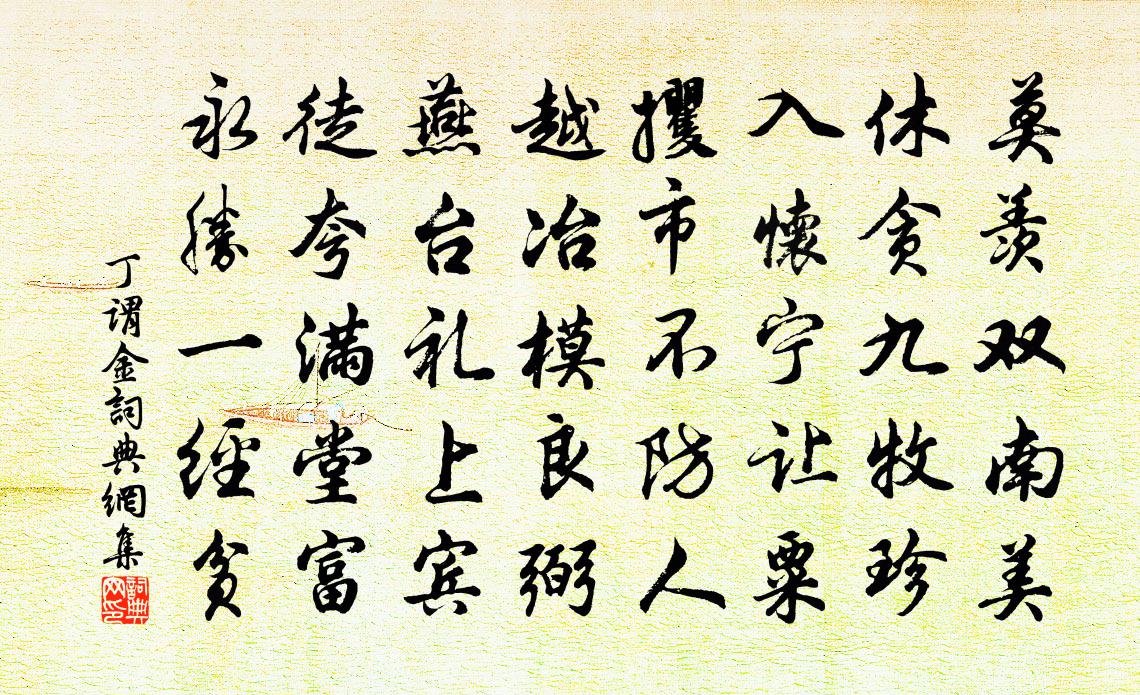 莫羡双南美
休贪九牧珍
入懷宁让粟
攫市不防人
越冶模良弼
燕台礼上宾
徒夸满堂富
永勝一經贫
丁谓金詞典網集
詞典网印